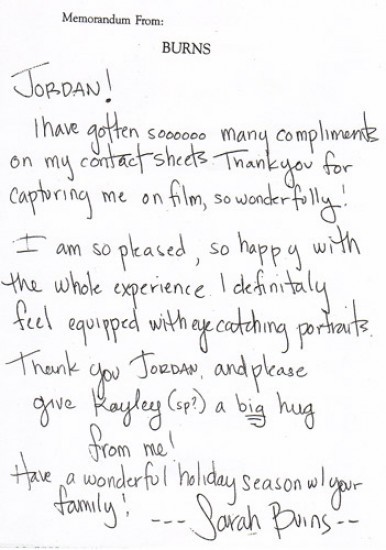 Memorandum From:
BURNS
JORDAN!
I have gotten soooooo many compliments
on my contact sheets Thankyou for
capturing me on film, so wonderfully!
I am so pleased, so happy with
the whole experience. I definitaly
feel equipped with eye catching portraits.
Thank you JORDAN, and please
give Kayley (sp?) a big hug
from me!
Have a wonderful holiday season w/ your
family! --- Sarah Burns --